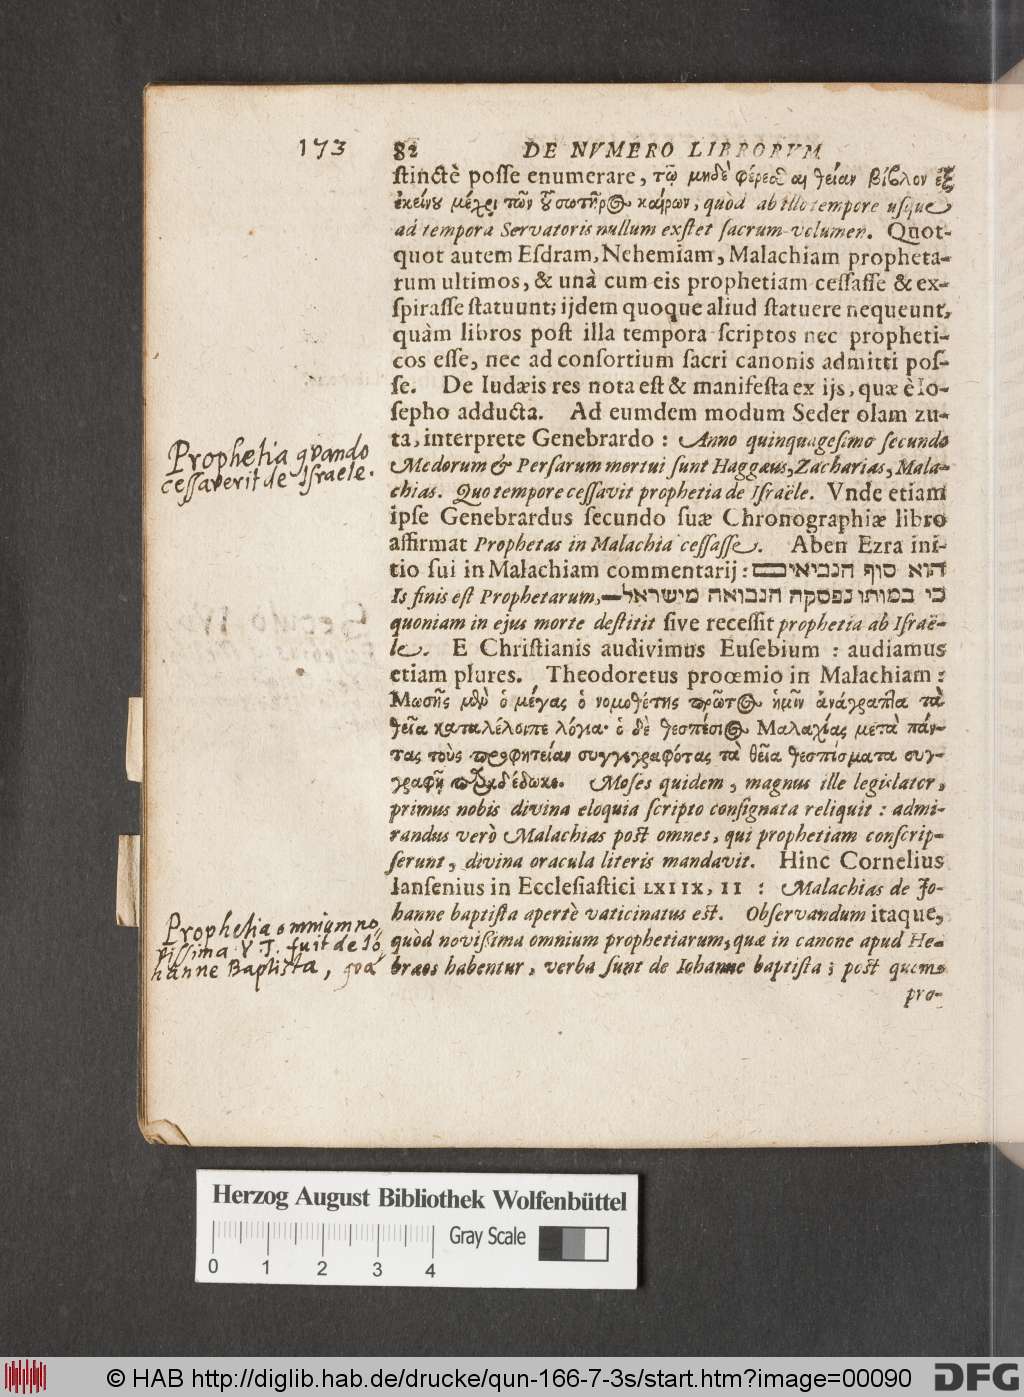 173
82 DE NVMERO LIBRORVM
ſtinctè poſſe enumerare, τῷ μηδὲ φέρεσθαι θείαν βίβλον ἐξ
ἐκείνου μέχρι τῶν τοῦ σωτῆρος καίρων, quòd ab illo tempore uſque
ad tempora Servatoris nullum exſtet ſacrum volumen. Quot-
quot autem Eſdram, Nehemiam, Malachiam propheta-
rum ultimos, & unà cum eis prophetiam ceſſaſſe & ex-
ſpiraſſe ſtatuunt; ijdem quoque aliud ſtatuere nequeunt,
quàm libros poſt illa tempora ſcriptos nec propheti-
cos eſſe, nec ad conſortium ſacri canonis admitti poſ-
ſe. De Iudæis res nota eſt & manifeſta ex ijs, quæ è Io-
ſepho adducta. Ad eumdem modum Seder olam zu-
ta, interprete Genebrardo : Anno quinquageſimo ſecundo
Medorum & Perſarum mortui ſunt Haggæus, Zacharias, Mala-
chias. Quo tempore ceſſavit prophetia de Iſraële. Vnde etiam
ipſe Genebrardus ſecundo ſuæ Chronographiæ libro
affirmat Prophetas in Malachia ceſſaſſe. Aben Ezra ini-
tio ſui in Malachiam commentarij: הוא סוף הנביאים
Is finis eſt Prophetarum, כי במותו נפסקה הנבואה מישראל
quoniam in ejus morte deſtitit ſive receſſit prophetia ab Iſraë-
le. E Chriſtianis audivimus Euſebium : audiamus
etiam plures. Theodoretus proœmio in Malachiam :
Μωσῆς μὲν ὁ μέγας ὁ νομοθέτης πρῶτος ἡμῖν ἀνάγραπτα τὰ
θεῖα καταλέλοιπε λόγια· ὁ δὲ θεσπέσιος Μαλαχίας μετὰ πάν-
τας τοὺς προφητείαν συγγεγραφότας τὰ θεῖα θεσπίσματα συγ-
γραφῇ παραδέδωκε. Moſes quidem, magnus ille legislator,
primus nobis divina eloquia ſcripto conſignata reliquit : admi-
randus verò Malachias poſt omnes, qui prophetiam conſcrip-
ſerunt, divina oracula literis mandavit. Hinc Cornelius
Ianſenius in Eccleſiaſtici LXIIX, II : Malachias de Jo-
hanne baptiſta apertè vaticinatus eſt. Obſervandum itaque,
quòd noviſſima omnium prophetiarum, quæ in canone apud He-
bræos habentur, verba ſunt de Iohanne baptiſta ; poſt quem
pro-
Prophetia qvando
ceſſaverit de Iſraele.
Prophetia omnium no,
viſſima V T. fuit de Jo,
hanne Baptista,
Herzog August Bibliothek Wolfenbüttel
Gray Scale
0 1 2 3 4
© HAB http://diglib.hab.de/drucke/qun-166-7-3s/start.htm?image=00090
DFG